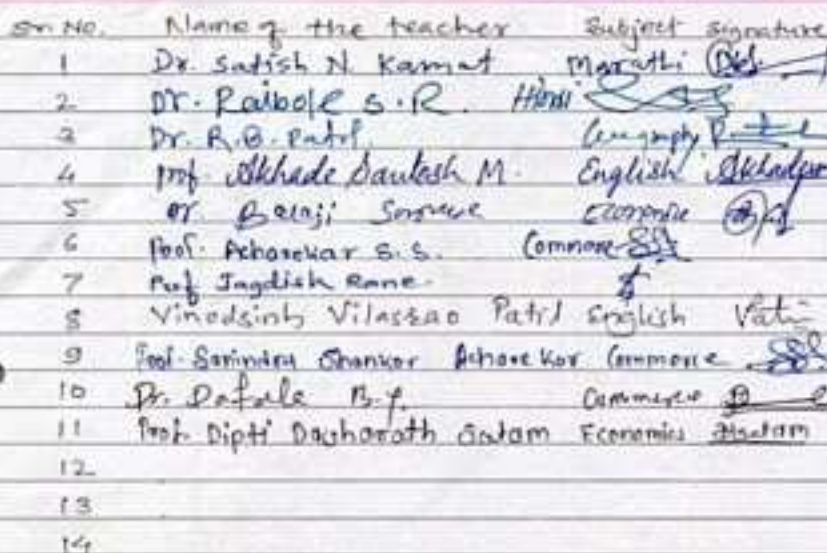 Sr. No. Name of the teacher Subject signature
1 Dr. Satish N. Kamat Marathi
2 Dr. Raibole S.R. Hindi
3 Dr. R.B. Patil Geography
4 Prof. Akhade Santosh M. English Akhade
5 Dr. Balaji Economic
6 Prof. Acharekar S.S. Commerce
7 Prof Jagdish Rane
8 Vinodsinh Vilasrao Patil English
9 Prof. Shankar Acharekar Commerce
10 Dr. Dafale B.Y. Commerce
11 Prof. Dipti Dasharath Satam Economics
12
13
14